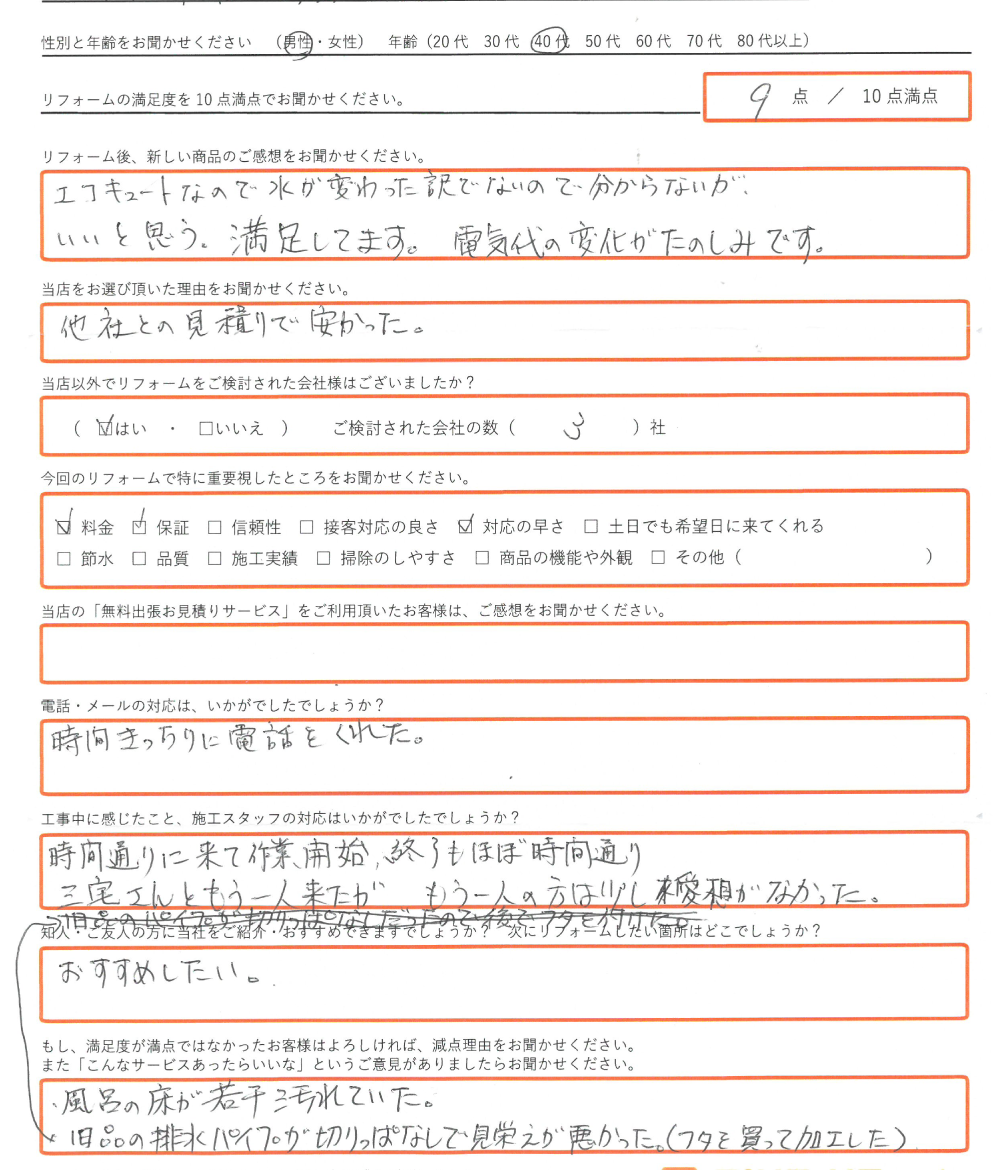 性別と年齢をお聞かせください （男性・女性） 年齢（20代 30代 40代 50代 60代 70代 80代以上）
リフォームの満足度を10点満点でお聞かせください。 9 点 ／ 10点満点
リフォーム後、新しい商品のご感想をお聞かせください。
エコキュートなので水が変わった訳でないので分からないが、
いいと思う。満足してます。電気代の変化がたのしみです。
当店をお選び頂いた理由をお聞かせください。
他社との見積りで安かった。
当店以外でリフォームをご検討された会社様はございましたか？
（ ☑はい ・ □いいえ ） ご検討された会社の数（ 3 ）社
今回のリフォームで特に重要視したところをお聞かせください。
☑ 料金 ☑ 保証 □ 信頼性 □ 接客対応の良さ ☑ 対応の早さ □ 土日でも希望日に来てくれる
□ 節水 □ 品質 □ 施工実績 □ 掃除のしやすさ □ 商品の機能や外観 □ その他（ ）
当店の「無料出張お見積りサービス」をご利用頂いたお客様は、ご感想をお聞かせください。
電話・メールの対応は、いかがでしたでしょうか？
時間きっちりに電話をくれた。
工事中に感じたこと、施工スタッフの対応はいかがでしたでしょうか？
時間通りに来て作業開始,終了もほぼ時間通り
三宅さんともう一人来たが もう一人の方は少し愛想がなかった。
旧品のパイプが切りっぱなしだったので後でフタを付けた。
知人・ご友人の方に当社をご紹介・おすすめできますでしょうか？ 次にリフォームしたい箇所はどこでしょうか？
おすすめしたい。
もし、満足度が満点ではなかったお客様はよろしければ、減点理由をお聞かせください。
また「こんなサービスあったらいいな」というご意見がありましたらお聞かせください。
・風呂の床が若干汚れていた。
・旧品の排水パイプが切りっぱなしで見栄えが悪かった。（フタを買って加工した）